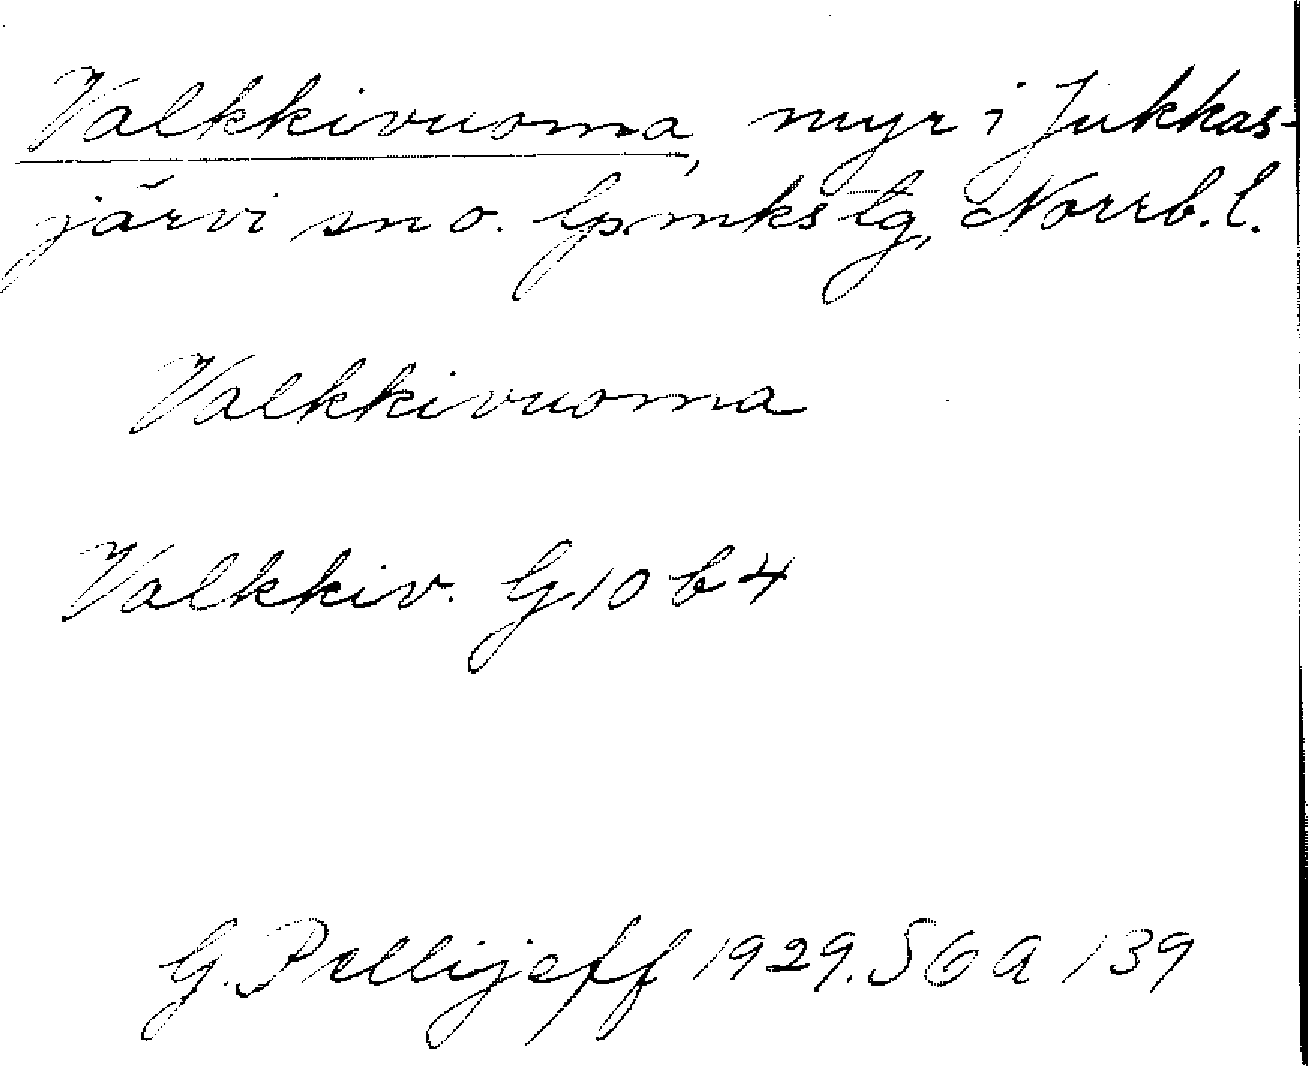 Valkkivuoma, myr i Jukkas-
järvi sn o. lpmkstg, Norrb. l.
Valkkivuoma
Valkkiv. G 10 b 4
G. Pellijeff 1929. SGA 139